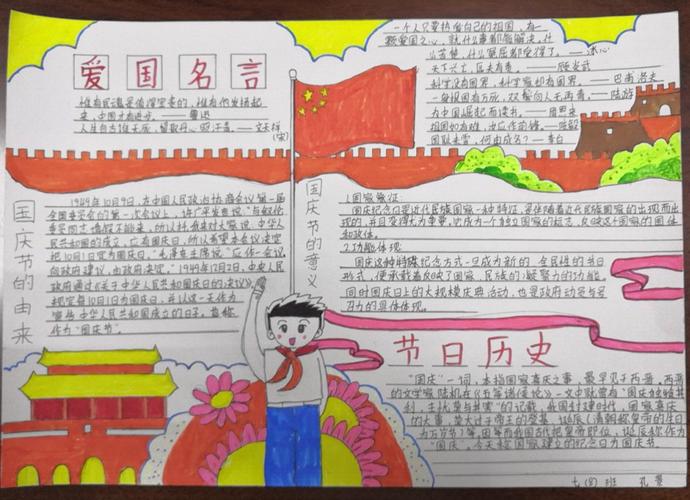 爱国名言
谁有民魂是值得宝贵的,谁有他发扬起
来,中国才有进步。——鲁迅
人生自古谁无死,留取丹心照汗青。——文天祥
(宋)
一个人只要热爱自己的祖国,有一
颗爱国之心,就什么事都能解决。什
么苦楚,什么冤屈都受得了。——冰心
天下兴亡,匹夫有责。——顾炎武
科学没有国界,科学家却有国界。——巴甫洛夫
一身报国有万死,双鬓向人无再青。——陆游
为中国崛起而读书。——周恩来
祖国如有难,汝应作前锋。——陈毅
国耻未雪,何由成名?——李白
国庆节的由来
1949年10月9日,在中国人民政治协商会议第一届
全国委员会的第一次会议上,许广平发言说:"马叙伦
委员因病请假不能来,所以托我来对大家说,中华人
民共和国的成立,应有国庆日,所以希望本会议决定
把10月1日定为国庆日。"毛泽东主席说"应作一会议,
向政府建议,由政府决定。"1949年12月2日,中央人民
政府通过《关于中华人民共和国国庆日的决议》,
规定每10月1日为国庆日,并以这一天作为
宣告中华人民共和国成立的日子。首称
作为"国庆节"。
国庆节的意义
1.国家象征:
国庆纪念日是近代民族国家一种特征,是伴随着近代民族国家的出现而出
现的,并且变得尤为重要。它成为一个独立国家的标志,反映这个国家的国体
和政体。
2.功能体现:
国庆这种特殊纪念方式一旦成为新的、全民性的节日
形式,便承载着反映了国家、民族的凝聚力的功能。
同时国庆日上的大规模庆典活动,也是政府动员与号
召力的具体体现。
节日历史
"国庆"一词,本指国家喜庆之事,最早见于西晋。西晋
的文学家陆机在《五等诸侯论》一文中就曾有"国庆独飨其
利,主忧莫与其害"的记载,我国封建时代,国家喜庆
的大事,莫大过于帝王的登基、诞辰(清朝称皇帝的生日
为万岁节)等。因而我国古代把皇帝即位、诞辰称作为
"国庆"。今天称国家建立的纪念日为国庆节。
七(8)班